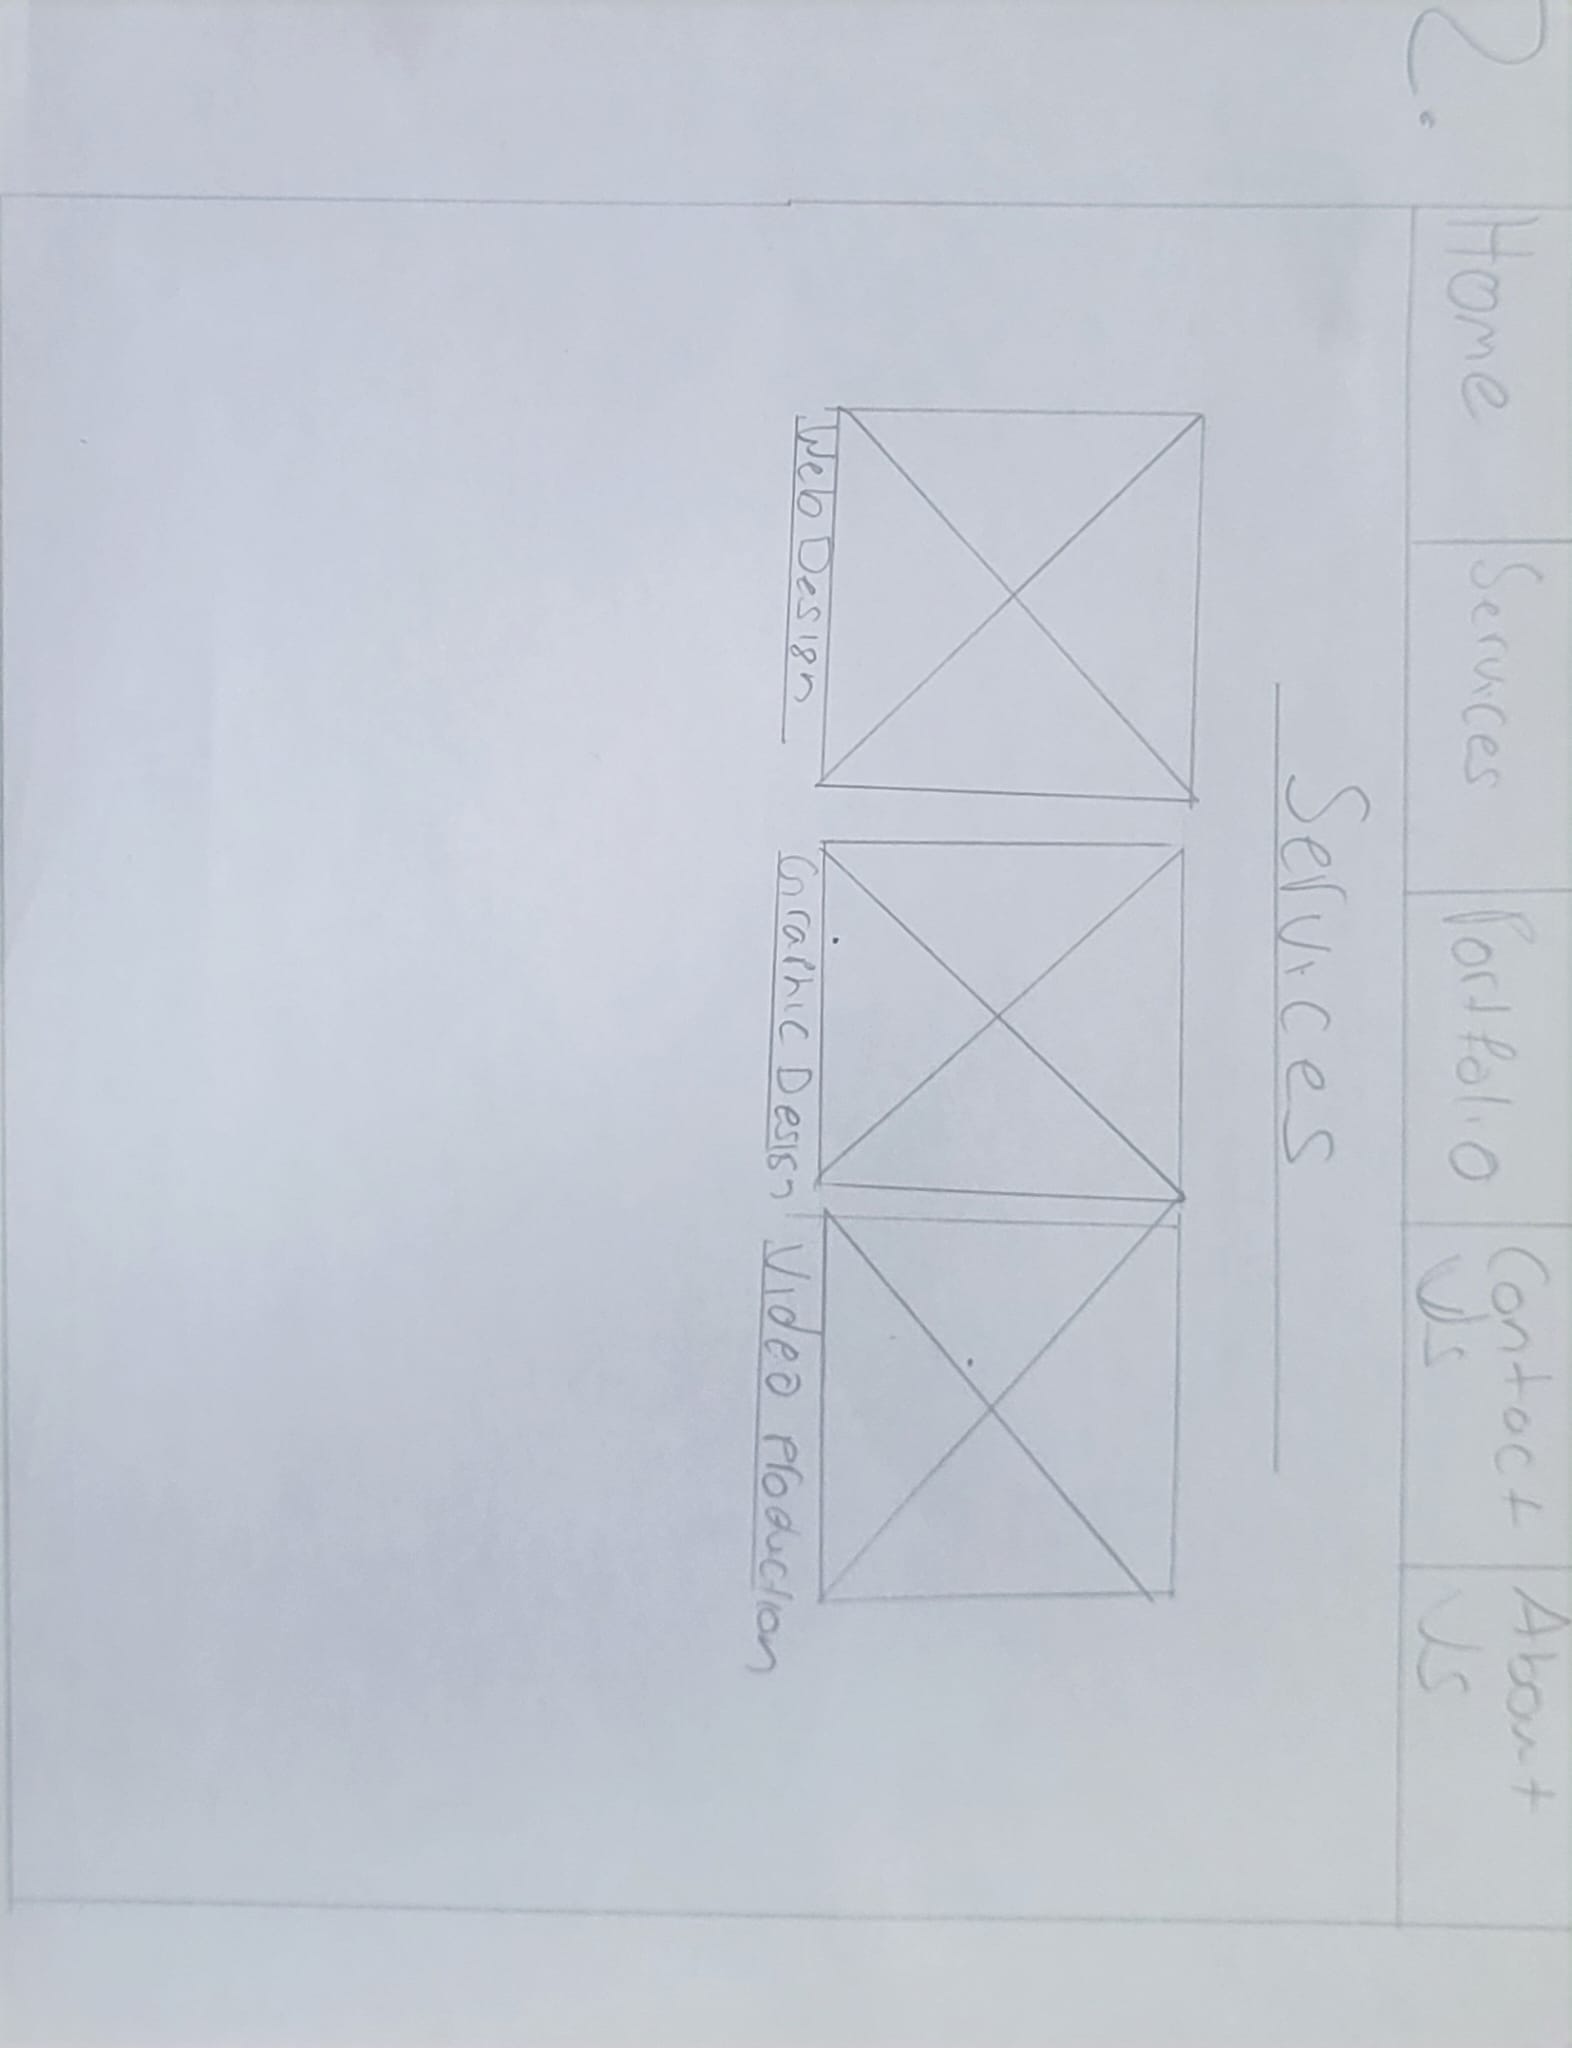 2.
Home Services Portfolio Contact Us About Us
Services
Web Design Graphic Design Video Production